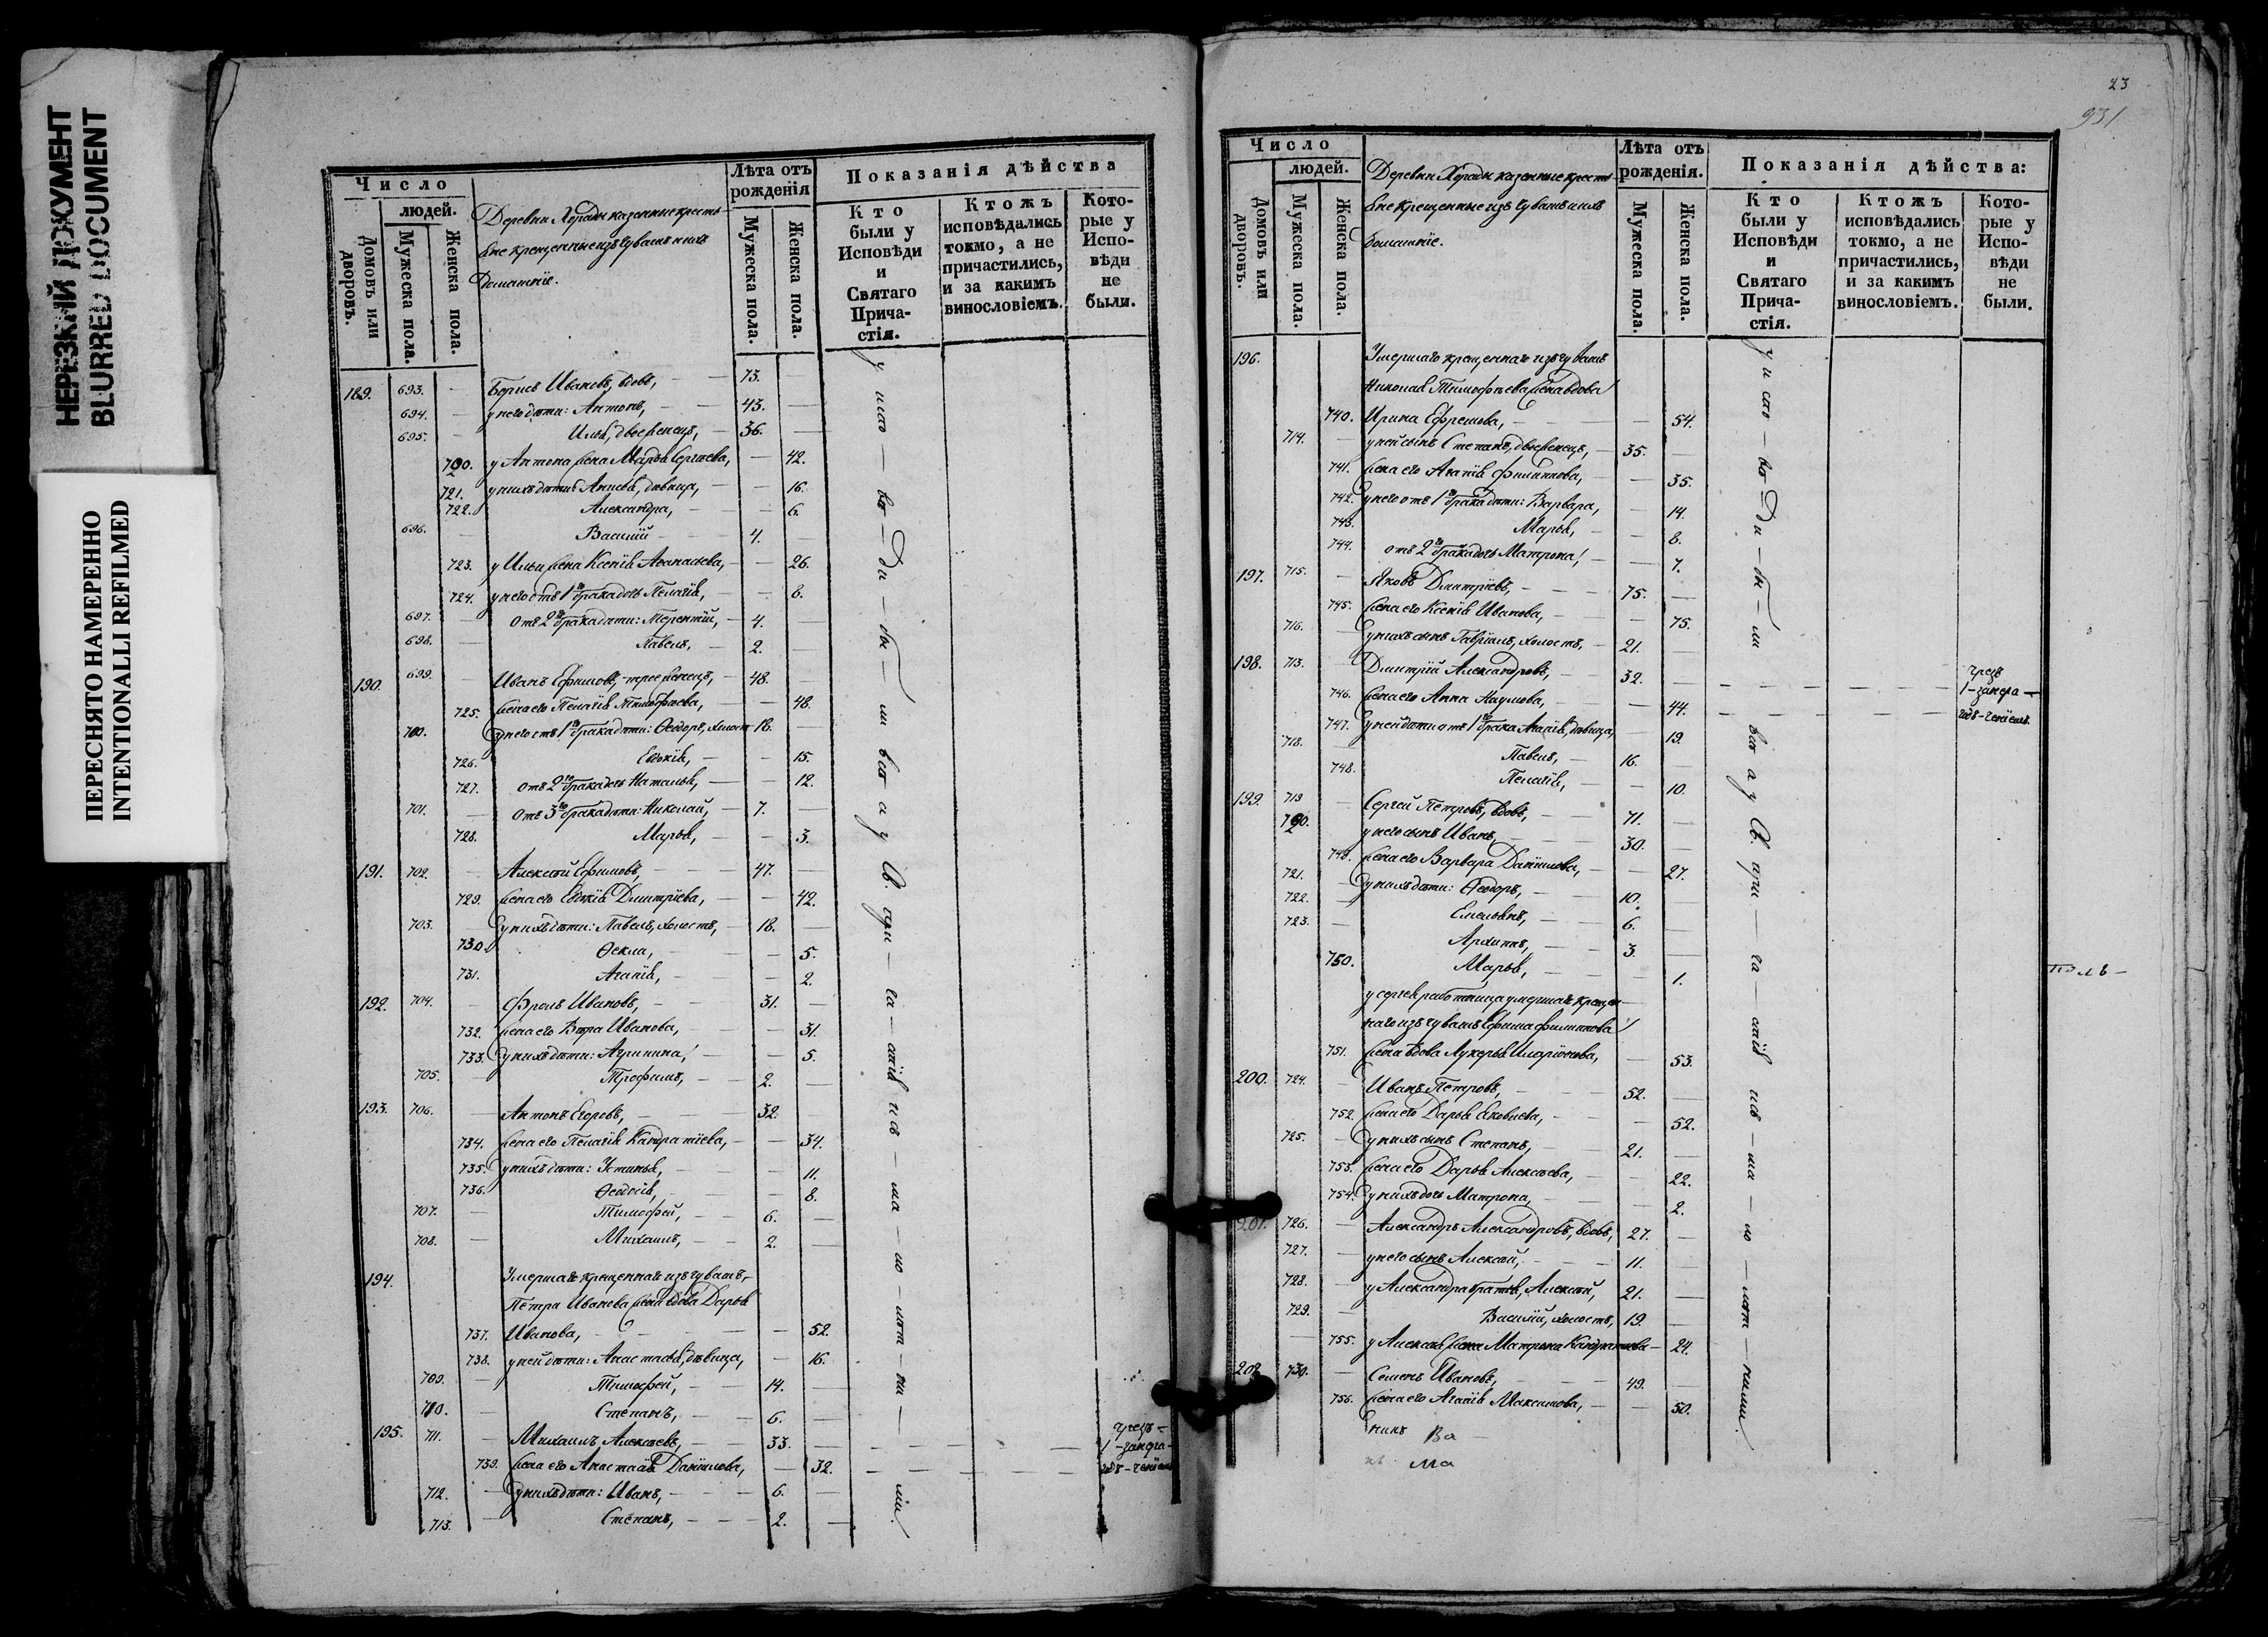 НЕРЕЗКИЙ ДОКУМЕНТ
BLURRED DOCUMENT
ПЕРЕСНЯТО НАМЕРЕННО
INTENTIONALLI REFILMED
Число
людей.
Домовъ или дворовъ.
Мужеска пола.
Женска пола.
Деревни Хорады казенные кресть-
яне крещенные изъ чувашъ и ихъ
домашніе.
Лѣта отъ рожденія
Мужеска пола.
Женска пола.
Показанія дѣйства
Кто были у Исповѣди и Святаго Прича-стія.
Ктожъ исповѣдались токмо, а не причастились, и за какимъ винословіемъ.
Кото-рые у Испо-вѣди не были.
189. 693. — Борисъ Ивановъ, вдовъ, — 73. —
694. — у него дѣти: Антонъ, — 43. —
695. — Илья, двоеженецъ, — 36. —
720. у Антона жена Марья Сергѣева, — 42.
721. у нихъ дѣти: Анисья, дѣвица, — 16.
722. Александра, — 6.
696. — Василій — 4.
723. у Ильи жена Ксенія Аѳанасьева, — 26.
724. у него отъ 1го брака дочь Пелагія, — 6.
697. — отъ 2го брака дѣти: Терентій, — 4. —
698. — Павелъ, — 2. —
190. 699. — Иванъ Ефимовъ, троеженецъ, — 48. —
725. жена его Пелагія Тимофѣева, — 48.
700. у него отъ 1го брака дѣти: Ѳеодоръ, холост 18. —
726. Евдокія, — 15.
727. отъ 2го брака дочь Наталья, — 12.
701. — отъ 3го брака дѣти: Николай, — 7. —
728. Марья, — 3.
191. 702. — Алексѣй Ефимовъ, — 47. —
729. жена его Евдокія Дмитріева, — 42.
703. у нихъ дѣти: Павелъ, холостъ, — 18. —
730. Ѳекла, — 5.
731. Агапія, — 2.
192. 704. — Фролъ Ивановъ, — 31. —
732. жена его Вѣра Иванова, — 31.
733. у нихъ дѣти: Агрипина, — 5.
705. — Трофимъ, — 2. —
193. 706. — Антонъ Егоровъ, — 32. —
734. жена его Пелагія Кандратіева, — 34.
735. у нихъ дѣти: Устинья, — 11.
736. Ѳеодосія, — 8.
707. — Тимофей, — 6. —
708. — Михаилъ, — 2. —
194. Умершаго крещеннаго изъ чувашъ,
Петра Иванова жена вдова Дарья
737. Иванова, — 52.
738. у ней дѣти: Анастасья, дѣвица, — 16.
709. — Тимофей, — 14. —
710. — Степанъ, — 6. —
195. 711. — Михаилъ Алексѣевъ, — 33. —
739. жена его Анастасія Даниилова, — 32.
712. — у нихъ дѣти: Иванъ, — 6. —
713. — Степанъ, — 2. —
23
931
Число
людей.
Домовъ или дворовъ.
Мужеска пола.
Женска пола.
Деревни Хорады казенные кресть-
яне крещенные изъ чувашъ и ихъ
домашніе.
Лѣта отъ рожденія.
Мужеска пола.
Женска пола.
Показанія дѣйства:
Кто были у Исповѣди и Святаго Прича-стія.
Ктожъ исповѣдались токмо, а не причастились, и за какимъ винословіемъ.
Кото-рые у Испо-вѣди не были.
196. Умершаго крещеннаго изъ чувашъ
Николая Тимофѣева жена вдова
740. Ирина Ефремова, — 54.
714. — у ней сынъ Степанъ, двоеженецъ, — 35. —
741. жена его Агапія Филиппова, — 35.
742. у него отъ 1го брака дѣти: Варвара, — 14.
743. Марья, — 8.
744. отъ 2го брака дочь Матрона, — 7.
197. 715. — Яковъ Дмитріевъ, — 75. —
745. жена его Ксенія Иванова, — 75.
716. у нихъ сынъ Гавріилъ, холостъ, — 21. —
198. 713. — Дмитрій Александровъ, — 32. —
746. жена его Анна Наумова, — 44.
747. у ней дѣти отъ 1го брака Агапія, дѣвица, 19.
718. — Павелъ, — 16. —
748. Пелагія, — 10.
199. 719 — Сергей Петровъ, вдовъ, — 71. —
720. у него сынъ Иванъ, — 30. —
749. жена его Варвара Даниилова, — 27.
721. — у нихъ дѣти: Ѳеодоръ, — 10. —
722. — Емельянъ, — 6. —
723. — Архипъ, — 3. —
750. Марья, — 1.
у сергея работница умершаго крещен-
наго изъ чувашъ Ефима Филиппова
751. жена вдова Лукерья Иларіонова, — 53.
200. 724. — Иванъ Петровъ, — 52. —
752. жена его Дарья Яковлева, — 52.
725. — у нихъ сынъ Степанъ, — 21. —
753. жена его Дарья Алексѣева, — 22.
754. у нихъ дочь Матрона, — 2.
201. 726. — Александръ Александровъ, вдовъ, 27. —
727. — у него сынъ Алексѣй, — 11. —
728. — у Александра братья, Алексѣй, 21. —
729. — Василій, холостъ, 19. —
755. у Алексѣя жена Матрона Кандратіева — 24.
202. 730. — Семенъ Ивановъ, — 49. —
756. жена его Агапія Максимова, — 50.